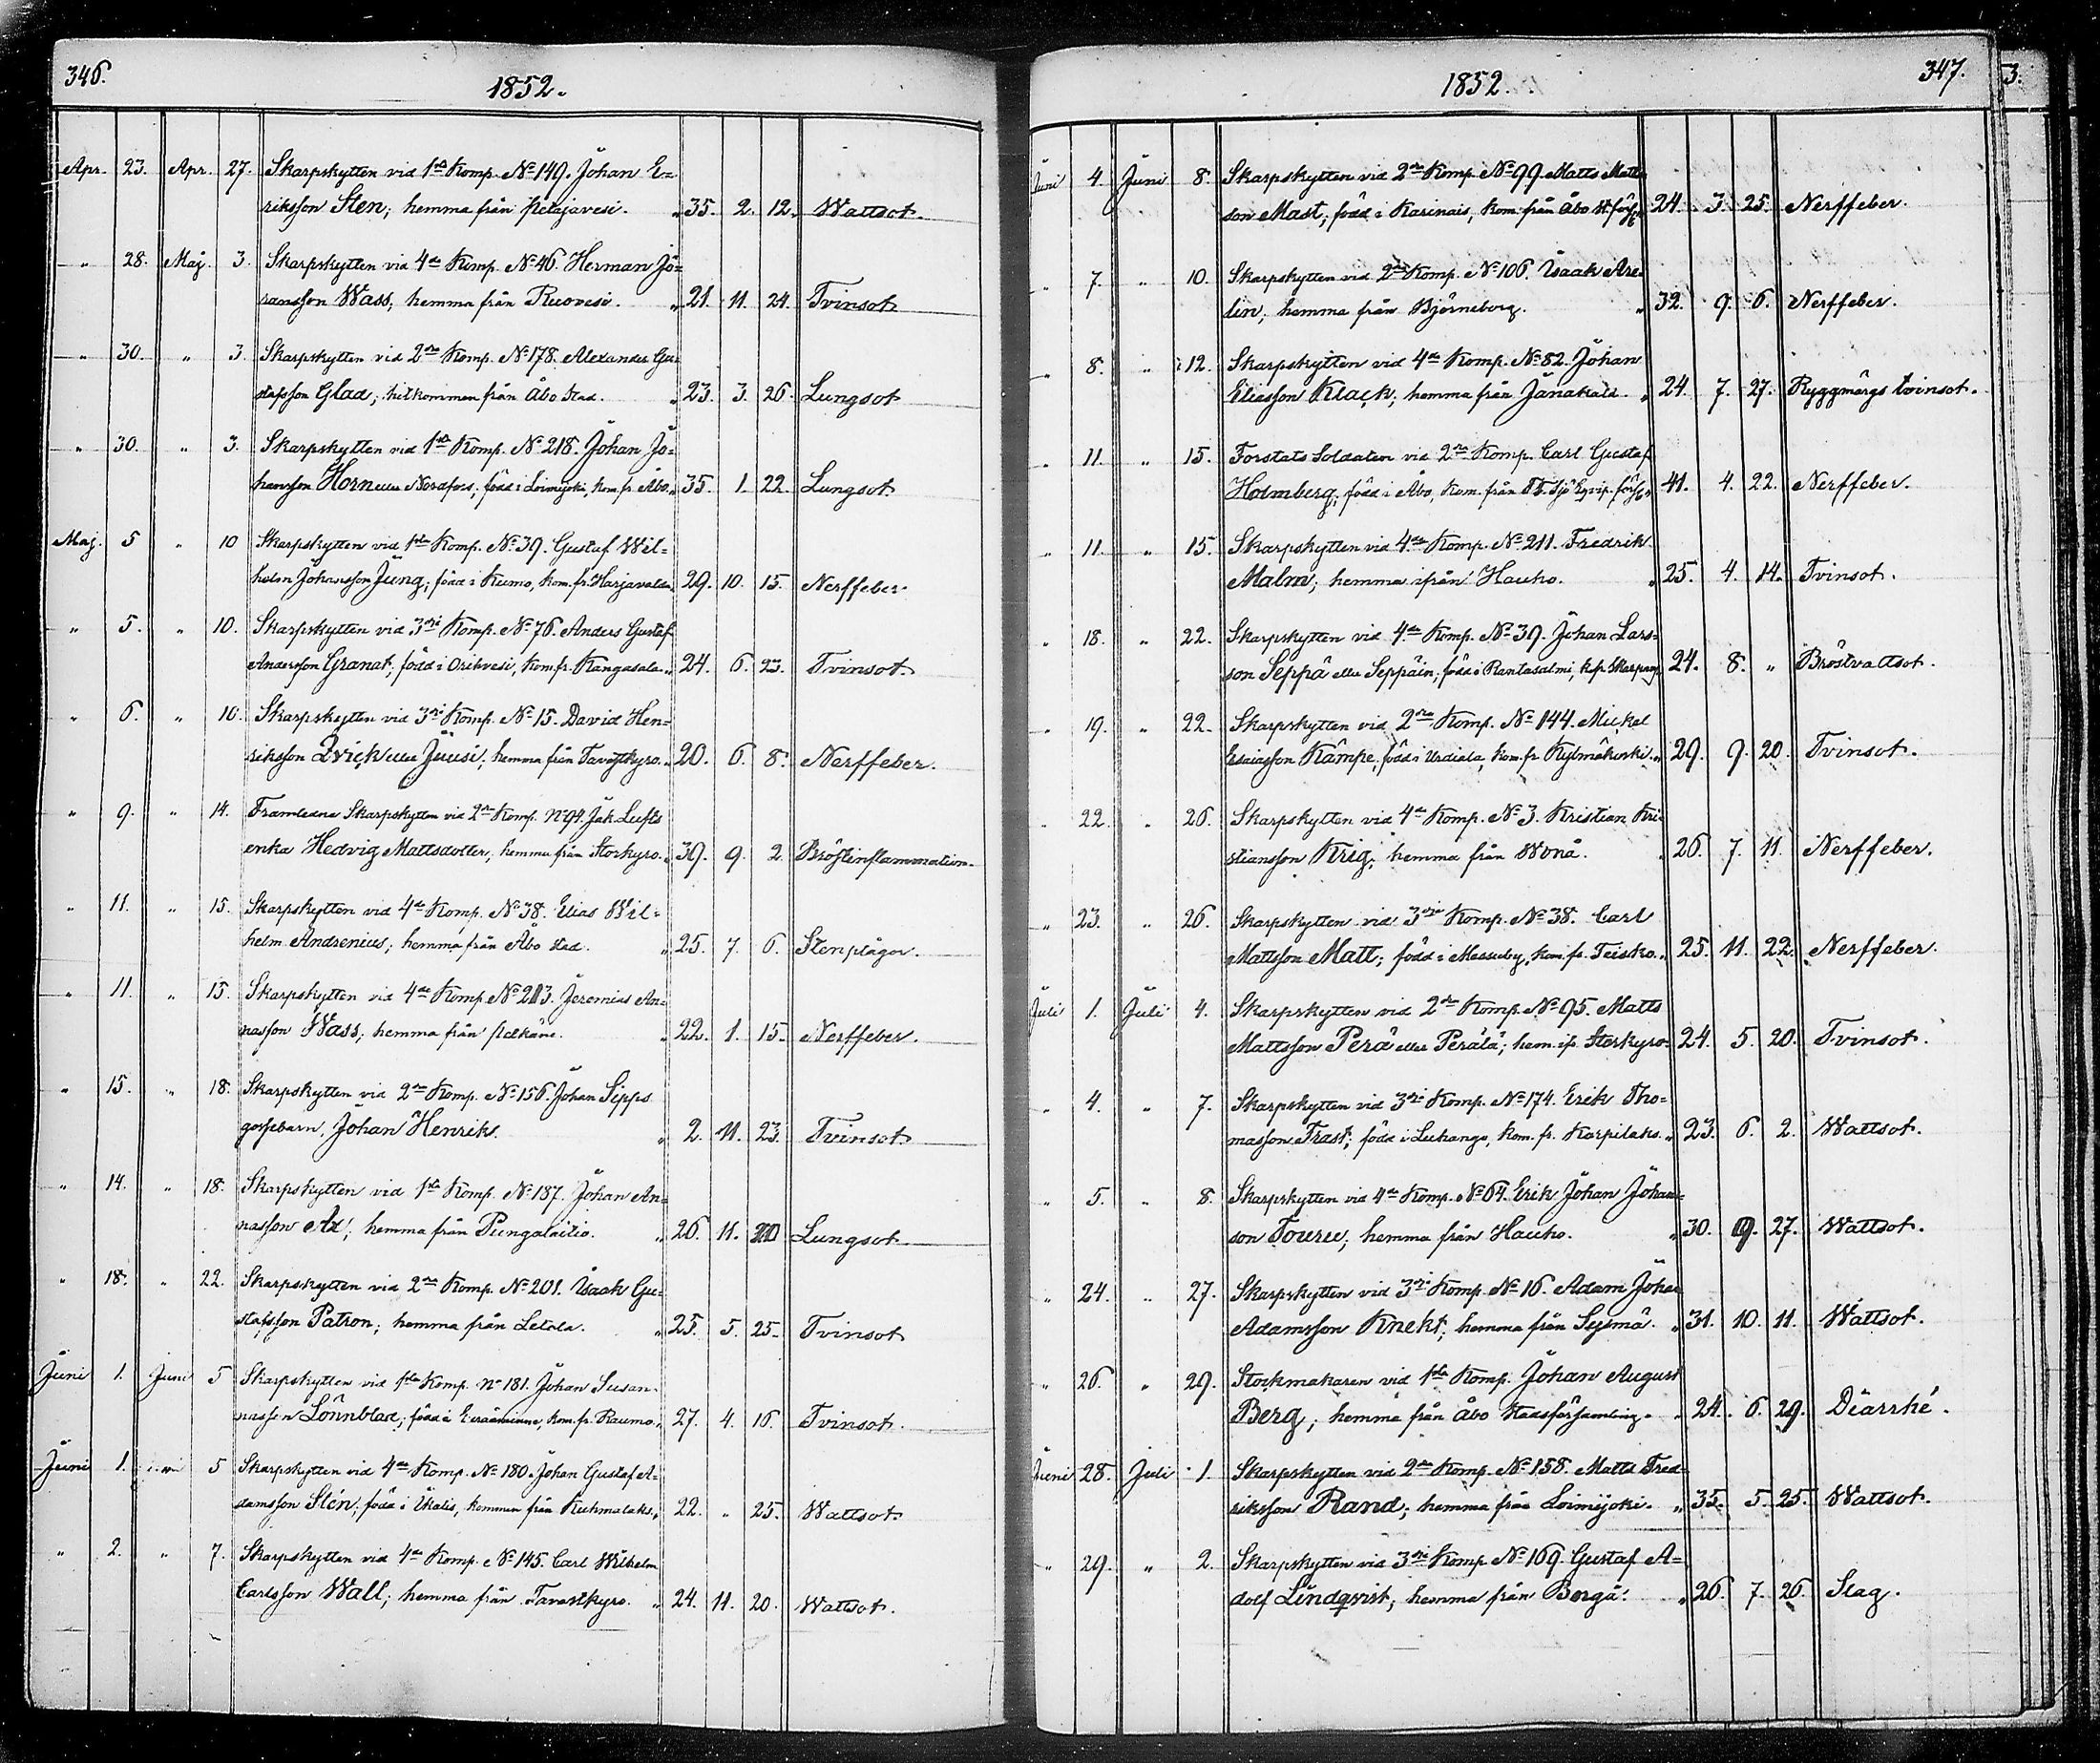 346.
1852.
Apr. 23. Apr. 27. Skarpskytten vid 1sta Komp. No 149. Johan E=
riksson Sten; hemma från Petäjävesi. " 35. 2. 12. Wattsot.
" 28. Maj. 3. Skarpskytten vid 4de Komp. No 46. Herman Jö=
ransson Wass; hemma från Ruovesi. " 21. 11. 24. Tvinsot.
" 30. " 3. Skarpskytten vid 2dra Komp. No 178. Alexander Gu=
stafsson Glad; hitkommen från Åbo stad. " 23. 3. 26. Lungsot
" 30. " 3. Skarpskytten vid 1sta Komp. No 218. Johan Jo=
hansson Horn eller Nordfors; född i Loimijoki, kom. fr. Åbo. " 35. 1. 22. Lungsot.
Maj. 5 " 10 Skarpskytten vid 1sta Komp. No 39. Gustaf Wil=
helm Johansson Jung; född i Kumo, kom. fr. Harjavalda. 29. 10. 15. Nerffeber.
" 5. " 10. Skarpskytten vid 3dje Komp. No 76. Anders Gustaf
Andersson Granat; född i Orihvesi, kom. fr. Kangasala. " 24. 6. 23. Tvinsot.
" 6. " 10. Skarpskytten vid 3dje Komp. No 15. David Hen=
riksson Qvick eller Juusi; hemma från Tavastkyro. " 20. 6. 8. Nerffeber.
" 9. " 14. Framledne Skarpskytten vid 2dra Komp. No 94. Jak. Lufts
enka Hedvig Mattsdotter; hemma från Storkyro. " 39. 9. 2. Bröstinflammation.
" 11. " 15. Skarpskytten vid 4de Komp. No 38. Elias Wil=
helm Andrenius; hemma från Åbo stad. " 25. 7. 6. Stenplågor.
" 11. " 15. Skarpskytten vid 4de Komp. No 213. Jeremias An=
nasson Wass; hemma från Pelkäne. " 22. 1. 15. Nerffeber.
" 15. " 18. Skarpskytten vid 2dra Komp. No 156. Johan Sipps
gossebarn. Johan Henrik. " 2. 11. 23. Tvinsot.
" 14. " 18. Skarpskytten vid 1sta Komp. No 187. Johan An=
nasson Ax; hemma från Pungalaitio. " 26. 11. Lungsot
" 18. " 22. Skarpskytten vid 2dra Komp. No 201. Isaak Gu=
stafsson Patron; hemma från Letala. " 25. 5. 25. Tvinsot
Juni 1. Juni 5 Skarpskytten vid 1sta Komp. No 181. Johan Susan=
nasson Lönnblad; född i Euraåminne, kom. fr. Raumo. " 27. 4. 16. Tvinsot.
Juni 1. 5 Skarpskytten vid 4de Komp. No 180. Johan Gustaf A=
damsson Stén; född i Ikalis, kommen från Kuhmalaks. " 22. " 25. Wattsot.
" 2. " 7. Skarpskytten vid 4de Komp. No 145. Carl Wilhelm
Carlsson Wall; hemma från Tavastkyro. " 24. 11. 20. Wattsot.
1852.
347.
3.
Juni 4. Juni 8. Skarpskytten vid 2dra Komp. No 99. Matts Matts=
son Mast; född i Karinais, kom. från Åbo st. förs. 24. 3. 25. Nerffeber.
" 7. " 10. Skarpskytten vid 2dra Komp. No 106. Isaak Are=
lin; hemma från Björneborg. " 32. 9. 6. Nerffeber.
" 8. " 12. Skarpskytten vid 4de Komp. No 82. Johan
Eliasson Klack; hemma från Janakala. " 24. 7. 27. Ryggmärgs tvinsot.
" 11. " 15. Forstats Soldaten vid 2dra Komp. Carl Gustaf
Holmberg; född i Åbo, kom. från F. Sjö Eqvip. förs. " 41. 4. 22. Nerffeber.
" 11. " 15. Skarpskytten vid 4de Komp. No 211. Fredrik
Malm; hemma ifrån Hauho. " 25. 4. 14. Tvinsot.
" 18. " 22. Skarpskytten vid 4de Komp. No 39. Johan Lars=
son Seppä eller Seppäin; född i Rantasalmi, 24. 8. " Bröstvattsot.
" 19. " 22. Skarpskytten vid 2dra Komp. No 144. Mickel
Esaiasson Kämpe; född i Urdiala, kom. fr. Kylmäkoski. " 29. 9. 20. Tvinsot.
" 22. " 26. Skarpskytten vid 4de Komp. No 3. Kristian Kri=
stiansson Krig; hemma från Wånå. " 26. 7. 11. Nerffeber.
" 23. " 26. Skarpskytten vid 3dje Komp. No 38. Carl
Mattsson Matt; född i Messuby, kom. fr. Teisko. " 25. 11. 22. Nerffeber.
Juli 1. Juli 4. Skarpskytten vid 2dra Komp. No 95. Matts
Mattsson Perä eller Perälä; hem. ifr. Storkyro. 24. 5. 20. Tvinsot.
" 4. " 7. Skarpskytten vid 3dje Komp. No 174. Erik Tho=
masson Trast; född i Luhango, kom. fr. Korpilaks. " 23. 6. 2. Wattsot.
" 5. " 8. Skarpskytten vid 4de Komp. No 64. Erik Johan Johans=
son Touru; hemma från Hauho. " 30. 9. 27. Wattsot.
" 24. " 27. Skarpskytten vid 3dje Komp. No 16. Adam Johan
Adamsson Knekt; hemma från Sysmä. " 31. 10. 11. Wattsot.
" 26. " 29. Stockmakaren vid 1sta Komp. Johan August
Berg; hemma från Åbo stadsförsamling. " 24. 6. 29. Diarrhé.
Juni 28. Juli 1. Skarpskytten vid 2dra Komp. No 158. Matts Fred=
riksson Rand; hemma från Loimijoki. " 35. 5. 25. Wattsot.
" 29. " 2. Skarpskytten vid 3dje Komp. No 169. Gustaf A=
dolf Lindqvist; hemma från Borgå. " 26. 7. 26. Slag.